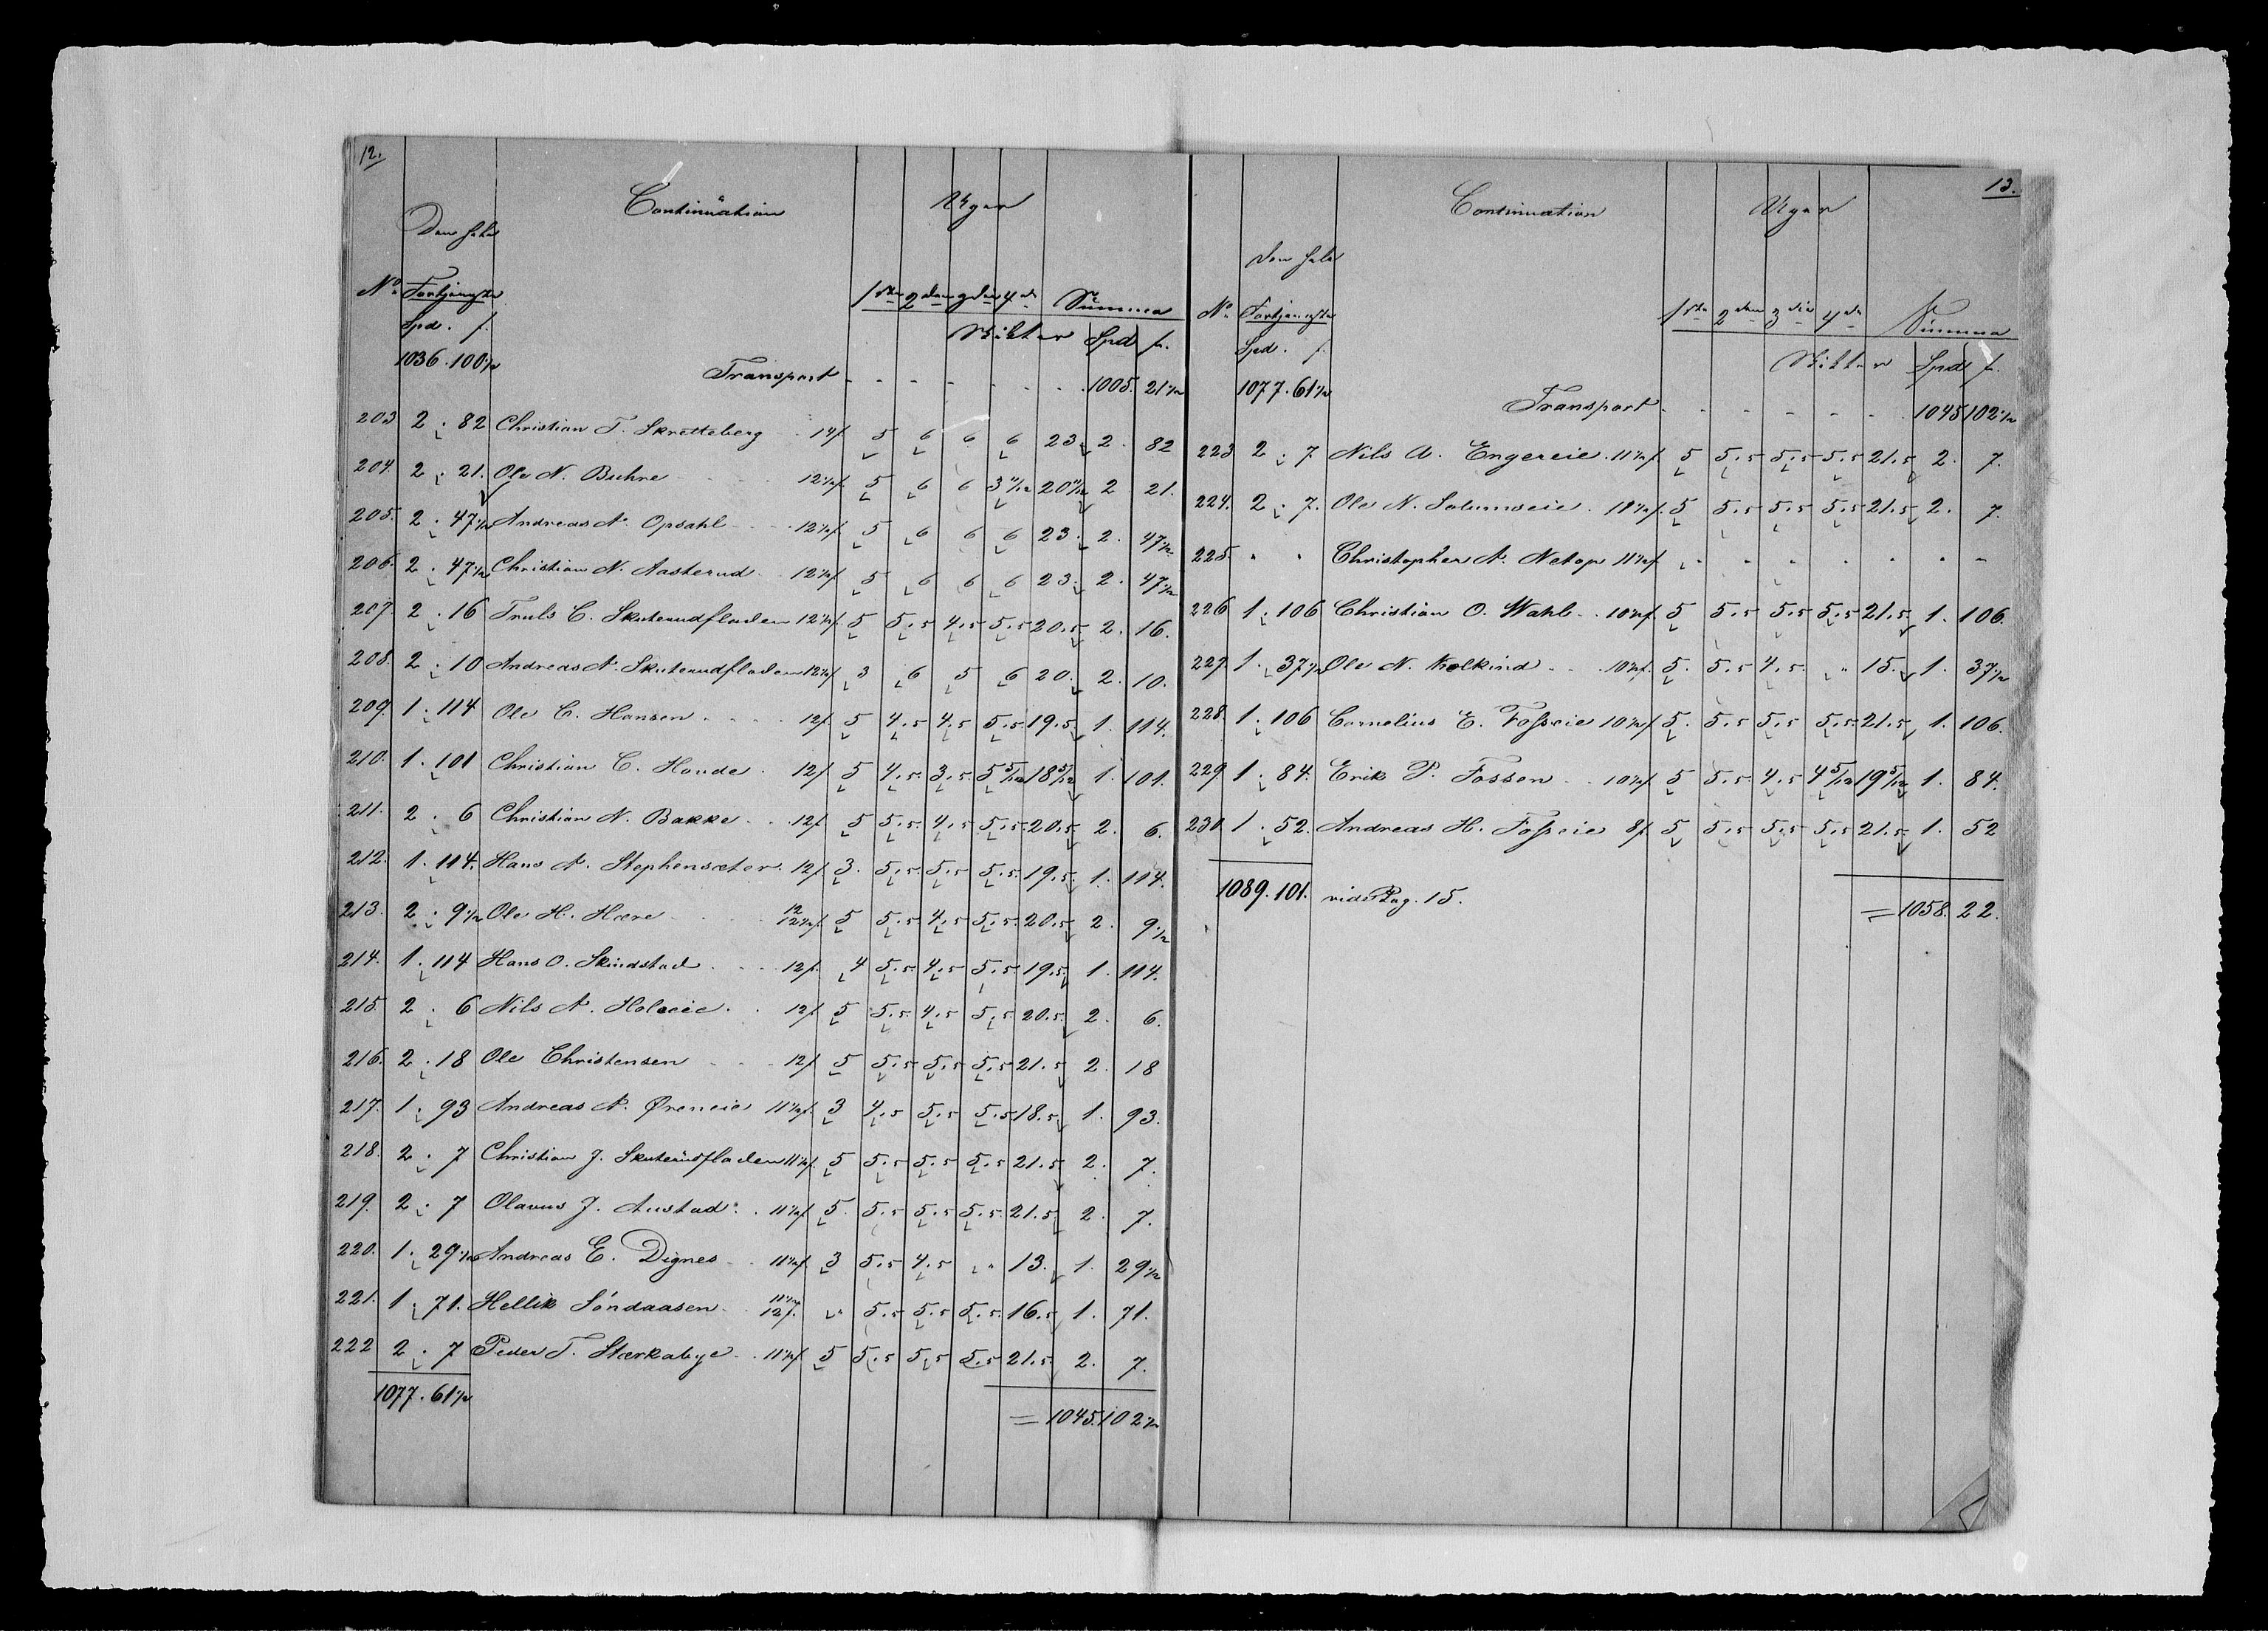 12.
Continuation Uger
Den hele
No. Fortjeneste 1ste 2den 3die 4de Summa
Spd. s. Skikter Spd s.
1036. 100½ Transport 1005. 21½
203 2. 82 Christian T. Skretteberg 14s 5 6 6 6 23. 2. 82
204. 2. 21. Ole N. Buhre 12½s 5 6 6 3 11/12 20 11/12 2 21.
205. 2. 47½ Andreas A. Opsahl 12½s 5 6 6 6 23. 2. 47½
206. 2. 47½ Christian N. Aasterud 12½s 5 6 6 6 23. 2. 47½
207. 2. 16 Truls C. Skuterudfladen 12½s 5 5.5 4.5 5.5 20.5 2. 16.
208. 2. 10 Andreas A. Skuterudfladen 12½s 3 6 5 6 20. 2. 10.
209. 1. 114 Ole C. Hansen 12s 5 4.5 4.5 5.5 19.5 1. 114.
210. 1. 101 Christian C. Haude 12s 5 4.5 3.5 5 5/12 18 5/12 1. 101.
211. 2. 6 Christian N. Bakke 12s 5 5.5. 4.5 5.5 20.5 2. 6.
212. 1. 114. Hans A. Stephensæter 12s 3. 5.5. 5.5. 5.5. 19.5. 1. 114.
213. 2. 9½ Ole H. Hære 12 12½s 5 5.5. 4.5 5.5. 20.5 2. 9½
214. 1. 114 Hans O. Skindstad 12s. 4 5.5. 4.5 5.5. 19.5 1. 114.
215. 2. 6 Nils A. Holeeie 12s 5 5.5. 4.5 5.5. 20.5. 2. 6.
216. 2. 18 Ole Christensen 12s 5 5.5 5.5 5.5 21.5 2. 18
217. 1. 93 Andreas A. Øreneie 11½s 3 4.5 5.5 5.5 18.5 1. 93.
218. 2. 7 Christian J. Skuterudfladen 11½s 5 5.5 5.5 5.5 21.5 2. 7.
219. 2. 7 Olavus J. Austad 11½s 5. 5.5 5.5 5.5. 21.5 2. 7.
220. 1. 29½ Andreas E. Dignes 11½s 3 5.5 4.5 " 13. 1. 29½
221. 1. 71. Hellik Sóndaasen 11½s 12s. " 5.5 5.5 5.5. 16.5 1. 71.
222 2. 7 Peder T. Stærkabye 11½s 5 5.5 5.5 5.5 21.5. 2. 7.
1077. 61½ = 1045. 102½
13.
Continuation Uger
Den hele
No. Fortjeneste 1ste 2den 3die 4de Summa
Spd. s. Skikter Spd s.
1077. 61½ Transport 1045 102½
223 2. 7 Nils A. Engereie 11½s 5 5.5 5.5 5.5 21.5 2. 7.
224. 2. 7. Ole N. Solumseie 11½s. 5 5.5 5.5 5.5 21.5 2. 7.
225. " " Christopher A. Netop 11½s " " " " " " "
226 1. 106 Christian O. Wahl 10½s 5 5.5 5.5 5.5 21.5 1. 106.
227. 1. 37½ Ole N. Kolkind 10½s 5. 5.5 4.5. " 15. 1. 37½
228. 1. 106 Cornelius E. Fosseie 10½s 5. 5.5 5.5 5.5. 21.5 1. 106.
229 1. 84. Erik P. Fossen 10½s 5 5.5 4.5 4 5/12 19 5/12 1. 84.
230 1. 52. Andreas H. Fosseie 8s 5 5.5 5.5 5.5 21.5 1. 52
1089. 101. vide Pag. 15. = 1058. 22.